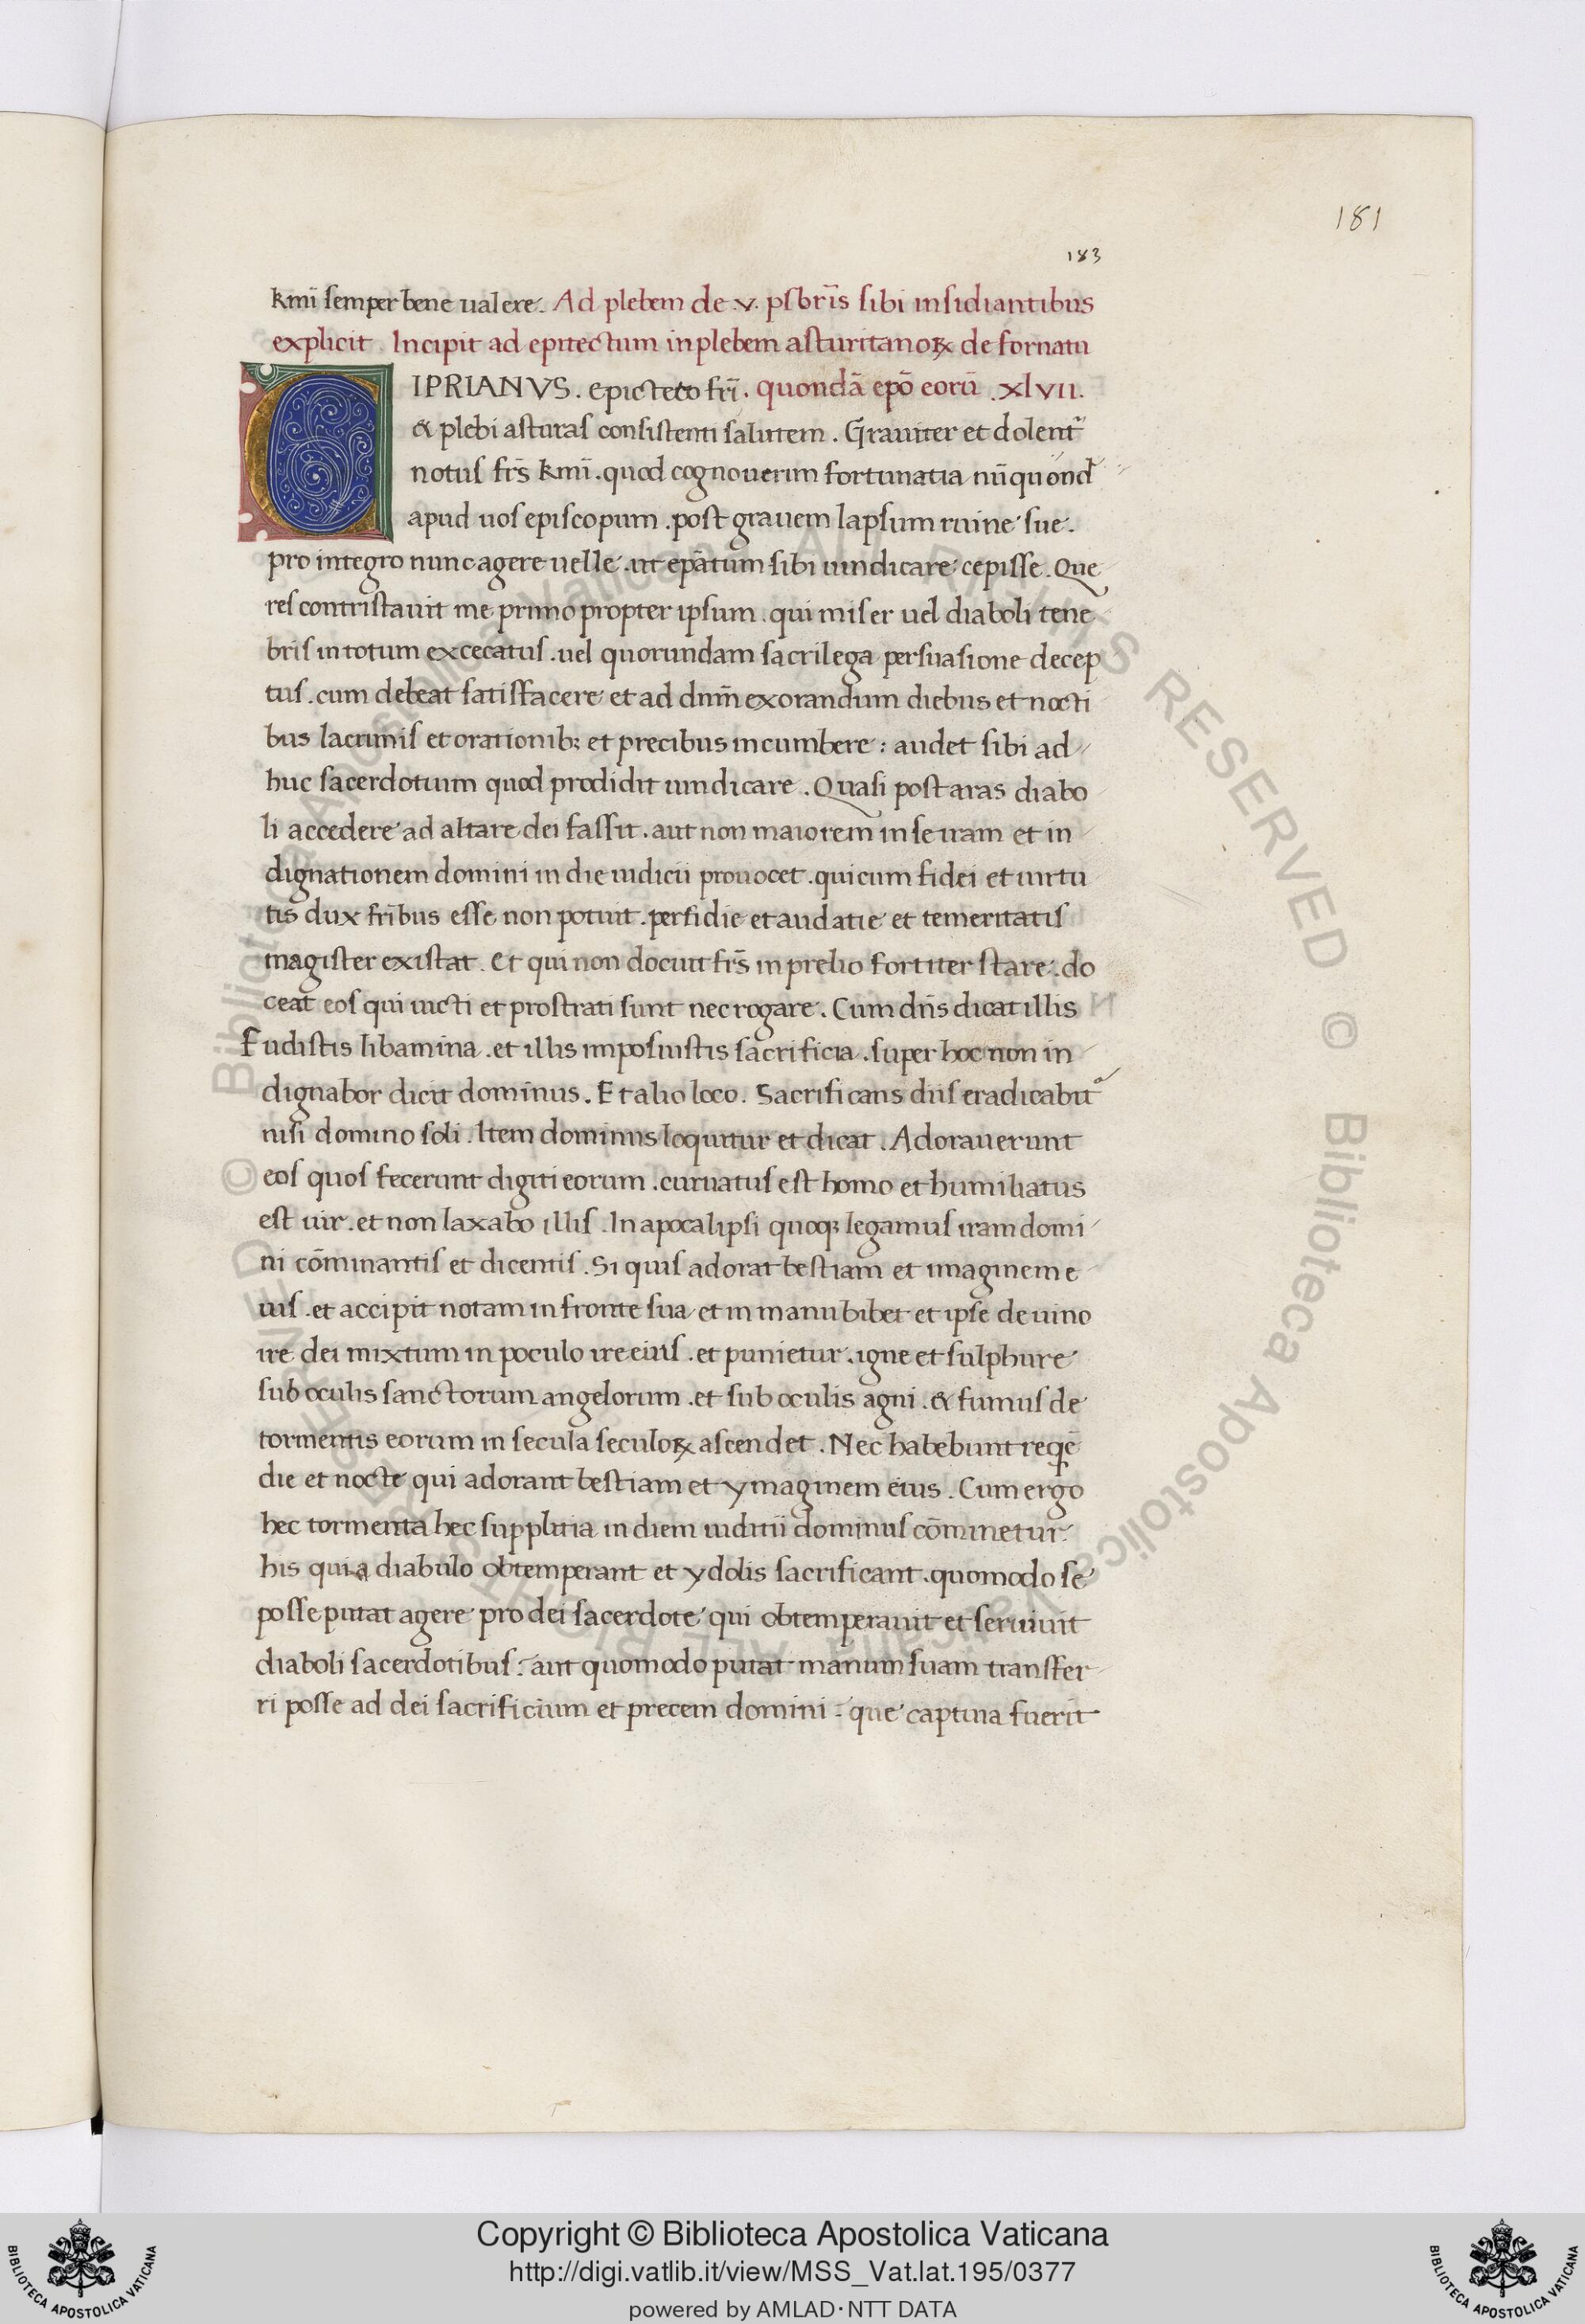 181
183
kmī semper bene ualere. Ad plebem de .v. psbrīs sibi insidiantibus
explicit. Incipit ad epitectum in plebem asturitanoꝝ de fornatu
CIPRIANVS. epicteto frī. quondā epō eorū .xlvii.
& plebi asturas consistenti salutem. Grauiter et dolent̃
notus frs̄ kmī. quod cognouerim fortunatianū quond̃
apud uos episcopum. post grauem lapsum ruine sue.
pro integro nunc agere uelle. ut epātum sibi uindicare cepisse. Que
res contristauit me primo propter ipsum. qui miser uel diaboli tene
bris in totum excecatus. uel quorundam sacrilega persuasione decep
tus. cum debeat satisfacere et ad dnm̄ exorandum diebus et nocti
bus lacrimis et orationib; et precibus incumbere: audet sibi ad
huc sacerdotium quod prodidit uindicare. Quasi post aras diabo
li accedere ad altare dei fas sit. aut non maiorem in se iram et in
dignationem domini in die iudicii prouocet. qui cum fidei et uirtu
tis dux frībus esse non potuit. perfidie et audatie et temeritatis
magister existat. Et qui non docuit frs̄ in prelio fortiter stare. do
ceat eos qui uicti et prostrati sunt nec rogare. Cum dns̄ dicat illis
Fudistis libamina. et illis imposuistis sacrificia. super hoc non in
dignabor dicit dominus. Et alio loco. Sacrificans diis eradicabit̃
nisi domino soli. Item dominus loquitur et dicat. Adorauerunt
eos quos fecerunt digiti eorum. curuatus est homo et humiliatus
est uir. et non laxabo illis. In apocalipsi quoq; legamus iram domi
ni cōminantis et dicentis. Si quis adorat bestiam et imaginem e
uis. et accipit notam in fronte sua et in manu bibet et ipse de uino
ire dei mixtum in poculo ire eius. et punietur. igne et sulphure
sub oculis sanctorum angelorum. et sub oculis agni. & fumus de
tormentis eorum in secula seculoꝝ ascendet. Nec habebunt reqē
die et nocte qui adorant bestiam et ymaginem eius. Cum ergo
hec tormenta hec supplitia in diem iuditii dominus cōminetur.
his qui a diabulo obtemperant et ydolis sacrificant. quomodo se
posse putat agere pro dei sacerdote qui obtemperauit et seruiuit
diaboli sacerdotibus: aut quomodo putat manum suam transfer
ri posse ad dei sacrificium et precem domini. que captiua fuerit
© Biblioteca Apostolica Vaticana ALL RIGHTS RESERVED © Biblioteca Apostolica Vaticana ALL RIGHTS RESERVED
Copyright © Biblioteca Apostolica Vaticana
http://digi.vatlib.it/view/MSS_Vat.lat.195/0377
powered by AMLAD·NTT DATA
BIBLIOTECA APOSTOLICA VATICANA
BIBLIOTECA APOSTOLICA VATICANA